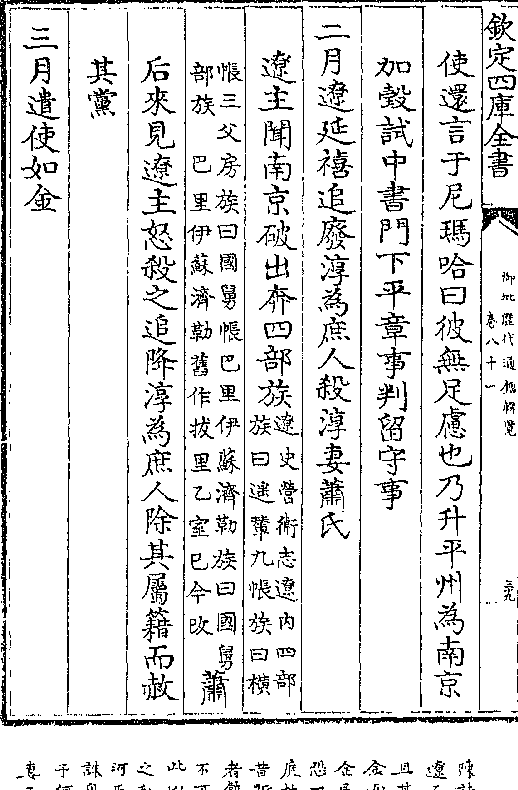 欽定四庫全書
御批歷代通鑑輯覽
卷八十一
三九
使還言于尼瑪哈曰彼無足慮也乃升平州為南京
加穀試中書門下平章事判留守事
二月遼延禧追廢淳為庶人殺淳妻蕭氏
遼主聞南京破出奔四部族遼史營衛志遼內四部
族曰遙輦九帳族曰橫
帳三父房族曰國舅帳巴里伊蘇濟勒族曰國舅
部族 巴里伊蘇濟勒舊作拔里乙室巳今改
蕭
后來見遼主怒殺之追降淳為庶人除其屬籍而赦
其黨
三月遣使如金